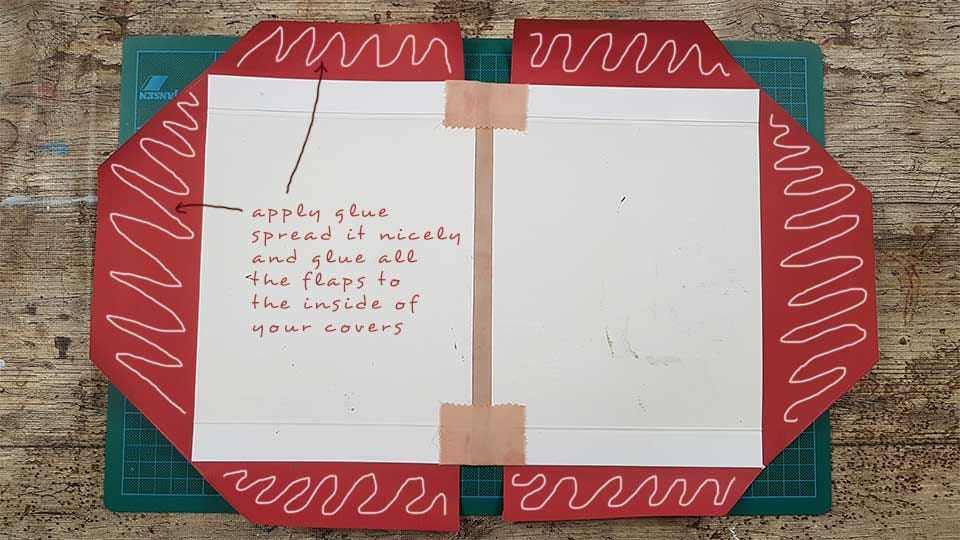 JANSEN
apply glue
spread it nicely
and glue all
the flaps to
the inside of
your covers